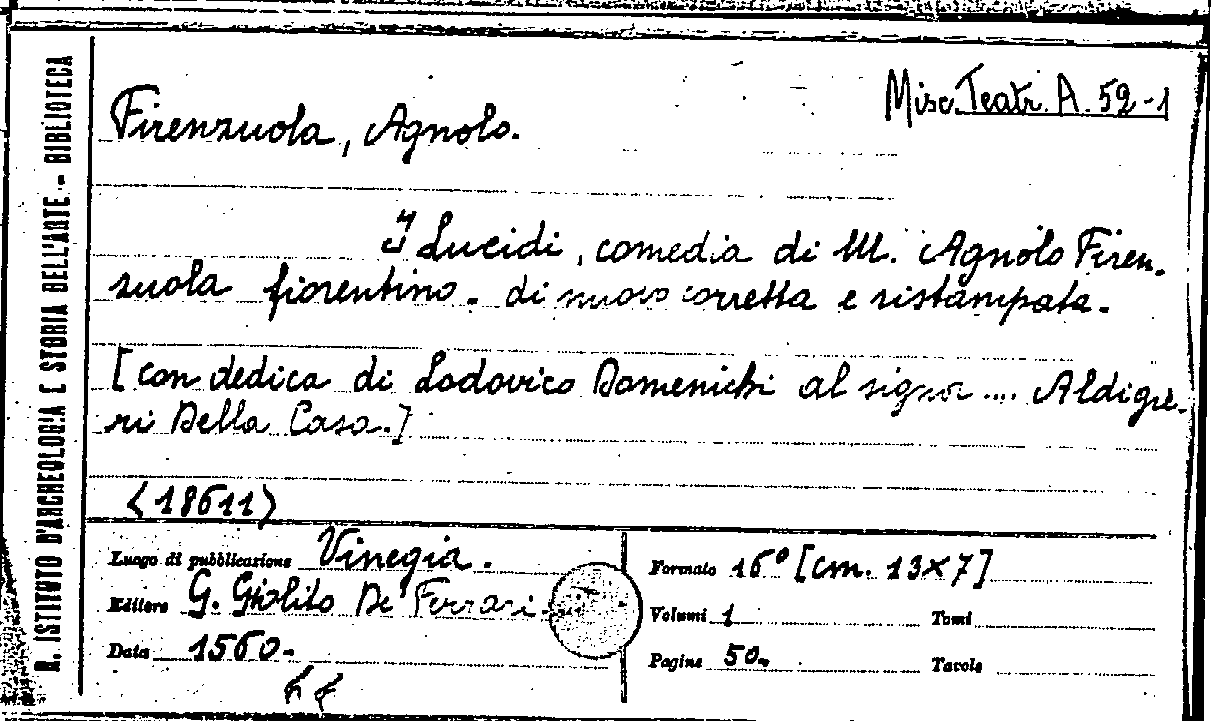 R. ISTITUTO D'ARCHEOLOGIA E STORIA DELL'ARTE - BIBLIOTECA
Misc. Teatr. A. 52-1
Firenzuola, Agnolo.
I Lucidi, comedia di M. Agnolo Firen-
zuola fiorentino. di nuovo corretta e ristampata.
[con dedica di Lodovico Domenichi al signor .... Aldigie-
ri Della Casa.]
<18611>
Luogo di pubblicazione Vinegia.
Editore G. Giolito De' Ferrari
Data 1560.
Formato 16° [cm. 13x7]
Volumi 1 Tomi
Pagine 50. Tavole